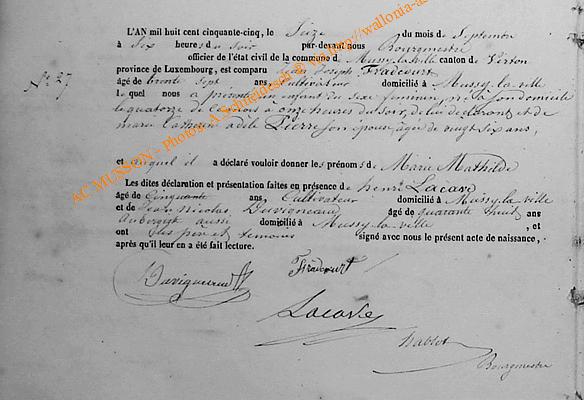 L'AN mil huit cent cinquante-cinq, le Seize du mois de Septembre
à Six heures du soir par-devant nous Bourgmestre
officier de l'état civil de la commune de Mussy-la-ville canton de Virton
province de Luxembourg, est comparu Jean Joseph Fraicourt
N° 37
âgé de trente sept ans, Cultivateur domicilié à Mussy-la-ville
lequel nous a présenté un enfant du sexe feminin, né à son domicile
le quatorze de ce mois à onze heures du soir, de lui déclarant et de
marie Catherine adele Pierson épouse, âgée de vingt six ans,
et auquel il a déclaré vouloir donner les prénoms de Marie Mathilde
Les dites déclaration et présentation faites en présence de henri Lacave
âgé de Cinquante ans, Cultivateur domicilié à Mussy-la-ville
et de Jean Nicolas Duvigneaux âgé de quarante huit ans
Aubergiste aussi domicilié à Mussy-la-ville, et
ont les père et temoins signé avec nous le présent acte de naissance,
après qu'il leur en a été fait lecture.
Fraicourt
Lacave
Bourgmestre
AC MUSSON - Photos A. Schneidesch @ visit http://wallonia-as